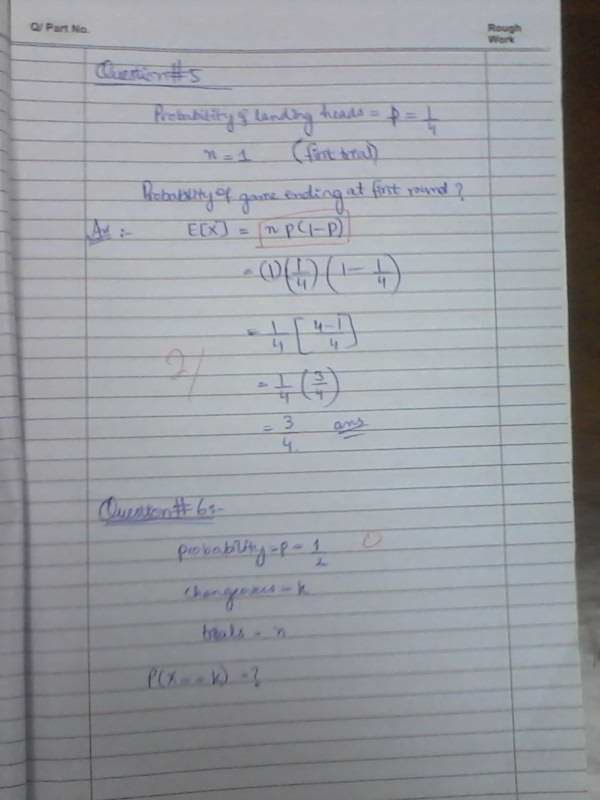 Q/ Part No.
Rough Work
Question # 5
Probability of landing heads = p = 1/4
n = 1 (first trial)
Probability of game ending at first round?
Ans :- E[X] = n p(1-p)
= (1)(1/4)(1 - 1/4)
= 1/4 [4-1/4]
2/
= 1/4 (3/4)
= 3/4 ans
Question # 6:-
probability = p = 1/2 0
changeovers = k
trials = n
P(X = = k) = ?